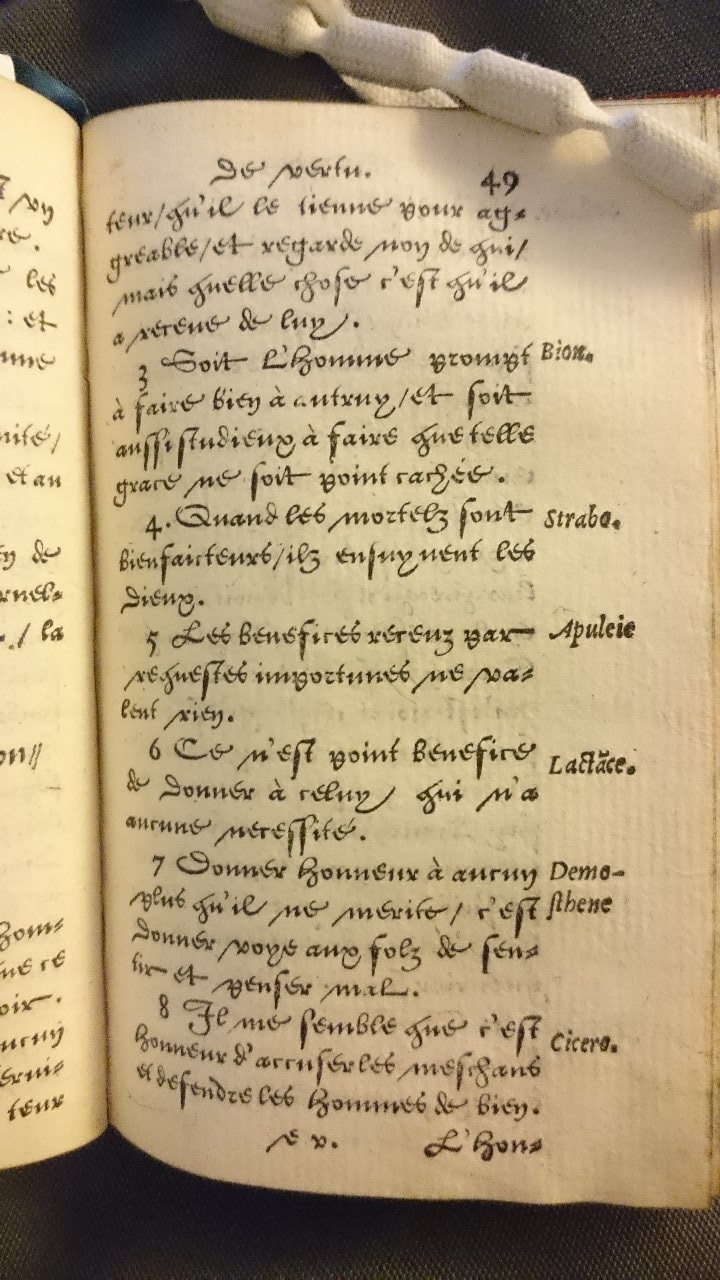 De vertu. 49
teur/qu'il le tienne pour ag-
greable/et regarde non de qui/
mais quelle chose c'est qu'il
a receue de luy.
3 Soit L'homme prompt Bion.
à faire bien à autruy/et soit
aussi studieux à faire que telle
grace ne soit point cachée.
4. Quand les mortelz sont Strabo.
bienfaicteurs/ilz ensuyvent les
Dieux.
5 Les benefices receuz par Apuleie
requestes importunes ne va-
lent rien.
6 Ce n'est point benefice Lactãce.
de donner à celuy/ qui n'a
aucune necessité.
7 Donner honneur à aucun Demo-
plus qu'il ne merite/ c'est sthene
donner voye aux folz de sen-
tir et penser mal.
8 Il me semble que c'est
honneur d'accuser les meschans Cicero.
et defendre les hommes de bien.
e v. L'hon-